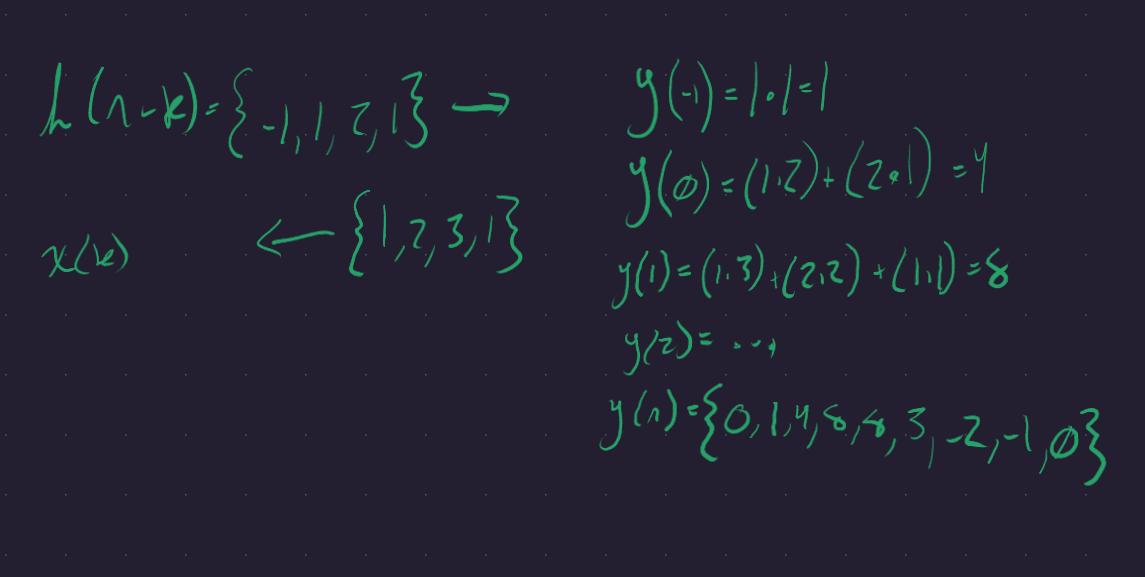 h(n-k)={-1,1,2,1} →
x(k) ← {1,2,3,1}
y(-1)=1·1=1
y(0)=(1·2)+(2·1)=4
y(1)=(1·3)+(2·2)+(1·1)=8
y(2)=...
y(n)={0,1,4,8,8,3,-2,-1,0}